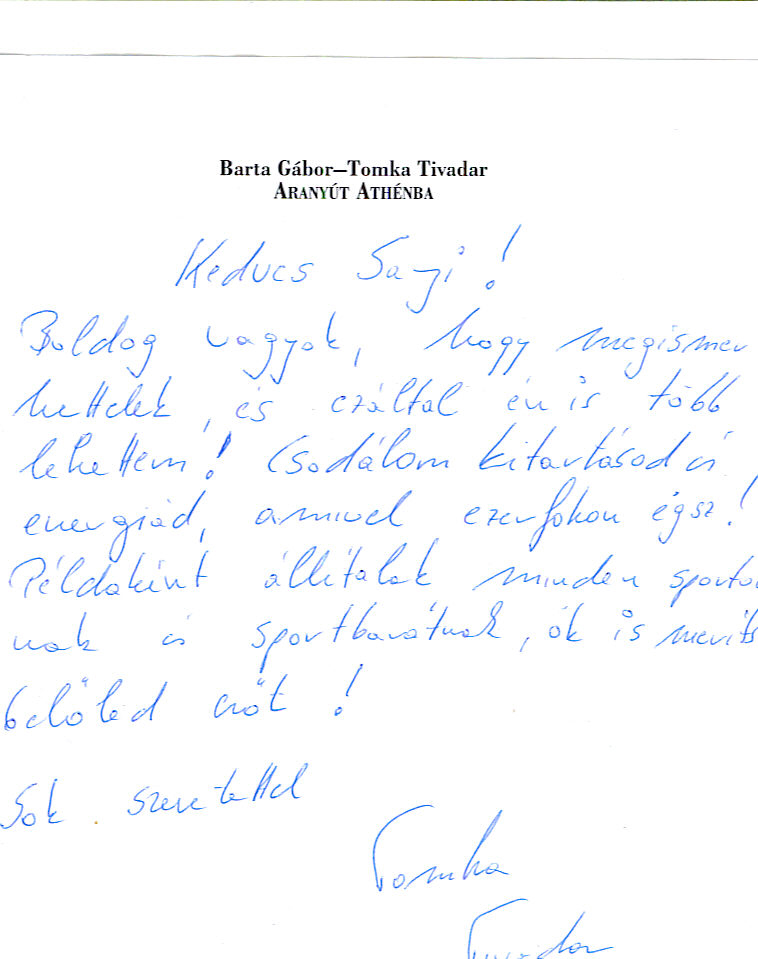 Barta Gábor–Tomka Tivadar
ARANYÚT ATHÉNBA
Kedves Sanyi!
Boldog vagyok, hogy megismer
hettelek, és ezáltal én is több
lehettem! Csodálom kitartásod és
energiád, amivel ezerfokon égsz!
Példaként állítalak minden sporto
nak és sportbarátnak, ők is meríts
belőled erőt!
Sok szeretettel
Tomka
Tivadar